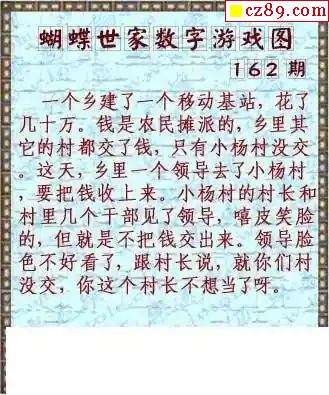 cz89.com
蝴蝶世家数字游戏图
162期
一个乡建了一个移动基站，花了
几十万。钱是农民摊派的，乡里其
它的村都交了钱，只有小杨村没交
。这天，乡里一个领导去了小杨村
，要把钱收上来。小杨村的村长和
村里几个干部见了领导，嘻皮笑脸
的，但就是不把钱交出来。领导脸
色不好看了，跟村长说，就你们村
没交，你这个村长不想当了呀。